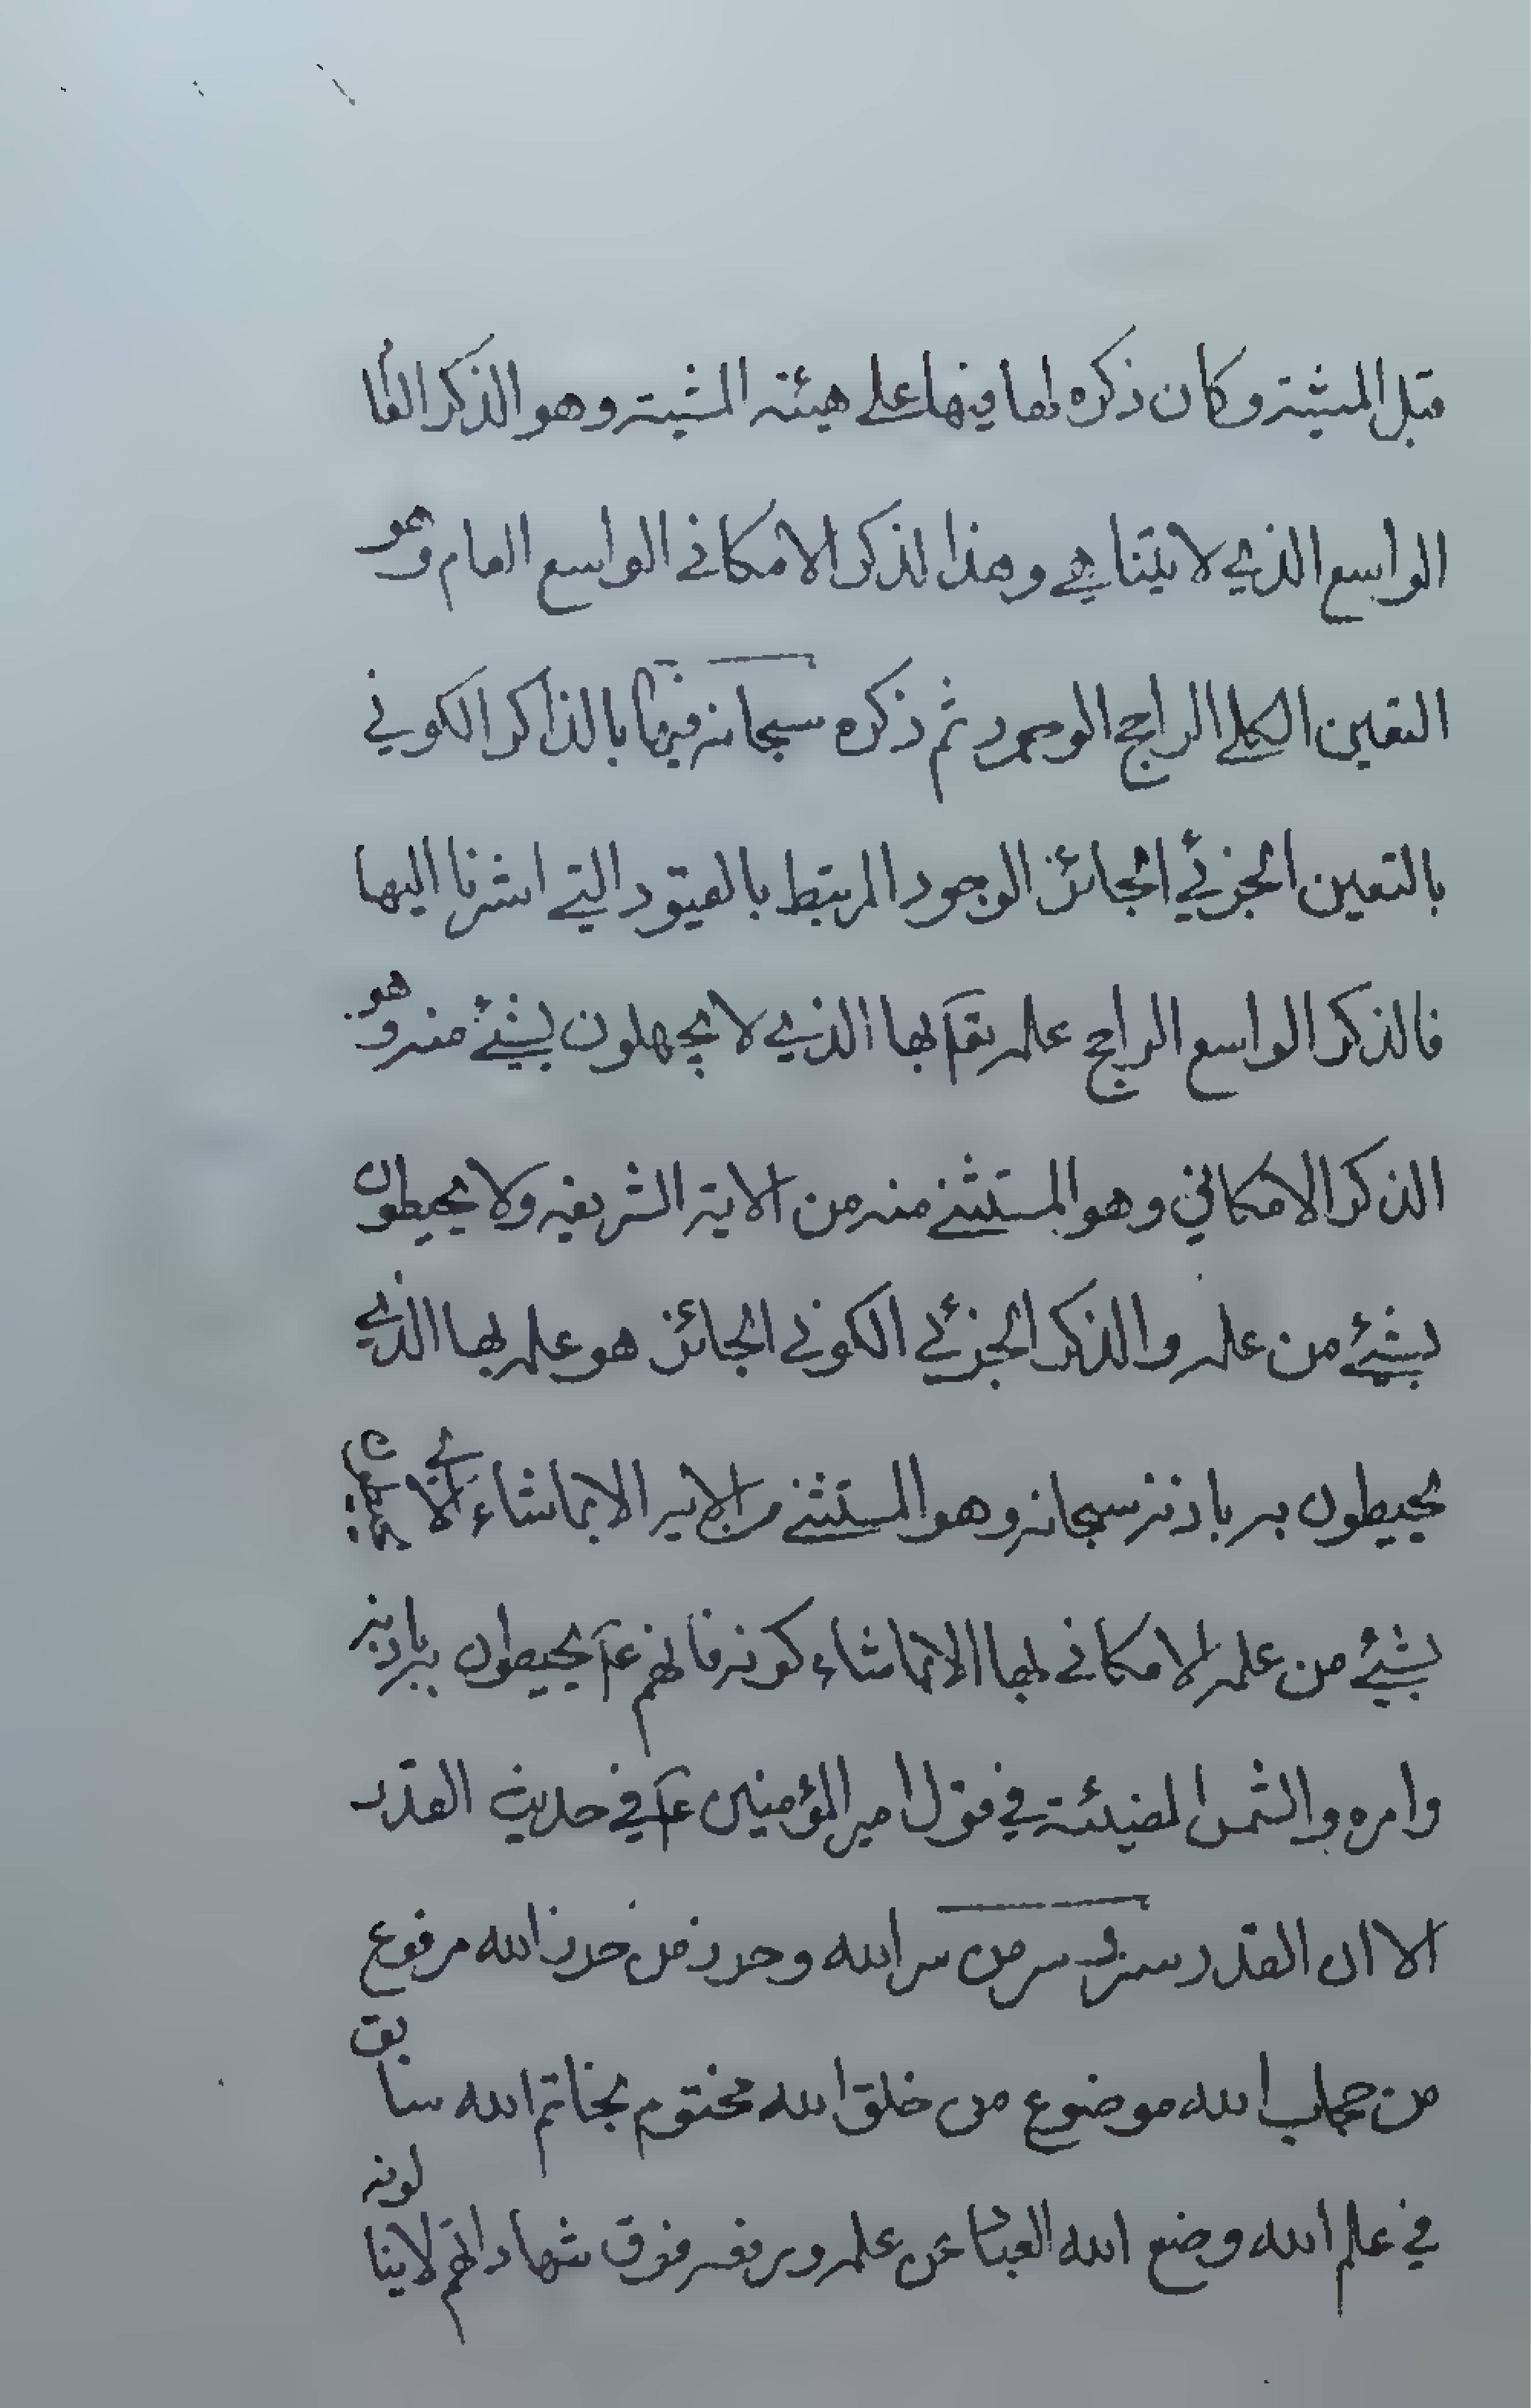 قبل المشية وكان ذكره لها فيها على هيئة المشية وهو الذكر العا
الواسع الذي لا يتناهى وهذا لذكر الامكاني الواسع العام وهو
التعين الكلي الراجح الوجود ثم ذكره سبحانه فيها بالذاكر الكوني
بالتعين الجزئي الجائز الوجود المرتبط بالقيود التي اشرنا اليها
فالذكر الواسع الراجح علمه تعا بها الذي لا يحيطون بشئ منه وهو
الذكر الامكاني وهو المستثنى منه من الاية الشريفه ولا يحيطون
بشئ من علمه والذكر الجزئي الكوني الجائز هو علمه بها الذي
يحيطون به باذنه سبحانه وهو المستثنى من الايه الا بما شاء اي لا يحيطون
بشئ من علمه الامكاني لها الا بما شاء كونه فانهم ع يحيطون به باذنه
وامره والشمس المضيئة في قول امير المؤمنين ع في حديث القدر
الا ان القدر سر من سر من سر الله وحرز من حرز الله مرفوع
من حجاب الله موضوع من خلق الله مختوم بخاتم الله سابق
في علم الله وضع الله العباد عن علمه ورفعه فوق شهاداتهم لاينالونه